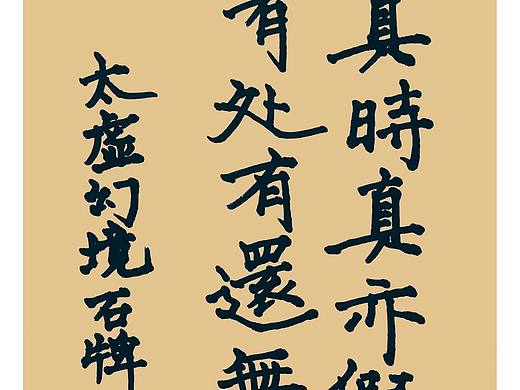 真時真亦假
有处有還無
太虛幻境石牌